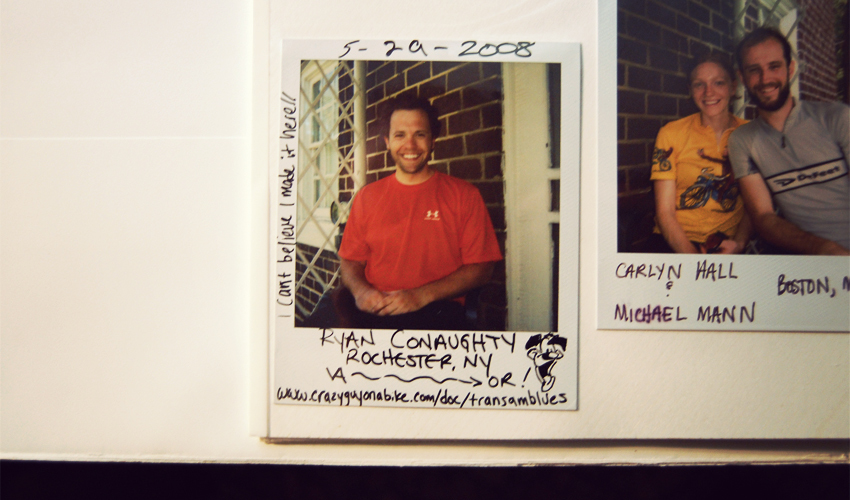 5-29-2008
I can't believe I made it here!!
RYAN CONAUGHTY
ROCHESTER, NY
VA OR!
www.crazyguyonabike.com/doc/transamblues
DeFeet
CARLYN HALL
&
MICHAEL MANN
BOSTON, M